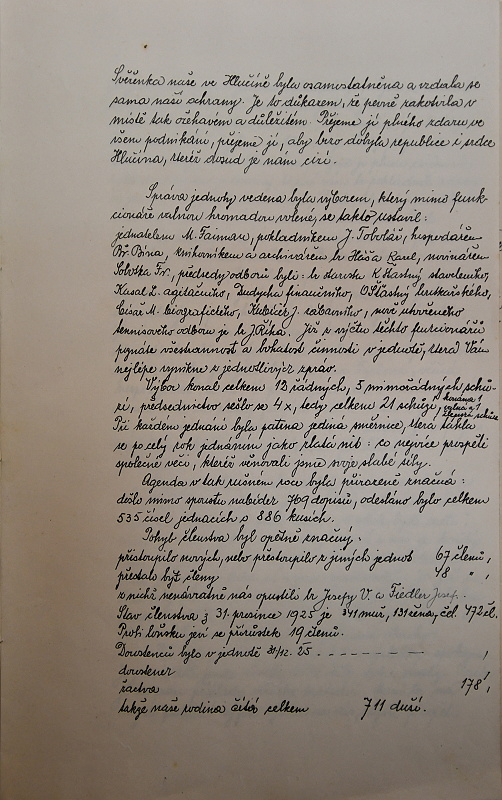 Svěřenka naše ve Hlučíně byla osamostatněna a vzdala se
sama naší ochrany. Je to důkazem, že pevně zakotvila v
místě tak ožehavém a důležitém. Přejeme jí plného zdaru ve
všem podnikání, přejeme jí, aby brzo dobyla republice i srdce
Hlučína, které dosud je nám cizí.
Správa jednoty vedena byla výborem, který mimo funk-
cionáře valnou hromadou volené, se takto ustavil:
jednatelem M. Faiman, pokladníkem J. Tobolář, hospodářem
Br. Bína, knihovníkem a archivářem br. Karel, novinářem
Sobotka Fr., předsedy odborů byli: br. starosta K. Šťastný stavebního,
Kusal L. agitačního, Dudycha finančního, O. Šťastný loutkářského,
Císař M. biografického, Kubíček J. zábavního, nově utvořeného
tennisového odboru je br. J. Říka. Již z výčtu těchto funcionářů
poznáte všestrannost a bohatost činnosti v jednotě, která Vám
nejlépe vynikne z jednotlivých zpráv.
Výbor konal celkem 12 řádných, 5 mimořádných schů-
zí, předsednictvo sešlo se 4 x, tedy celkem 21 schůzí,
Při každém jednání byla patrna jediná směrnice, která táhla
se po celý rok jednáním jako zlatá nit: co nejvíce prospěti
společné věci, které věnovali jsme svoje slabé síly.
Agenda v tak rušném roce byla přirozeně značná:
došlo mimo spoustu nabídek 769 dopisů, odesláno bylo celkem
535 čísel jednacích o 886 kusích.
Pohyb členstva byl opětně značný.
přistoupilo nových, nebo přestoupilo z jiných jednot 67 členů,
přestalo být členy 48 " ,
z nichž nenávratně nás opustili br. Josefy V. a Fiedler Josef.
Stav členstva z 31. prosince 1925 je 341 mužů, 131 žena, čili 472 čl.
Proti loňsku jeví se přírůstek 19 členů.
Dorostenců bylo v jednotě 31/12. 25 ,
dorostenek
žactva 178 ,
takže naše rodina čítá celkem 711 duší.